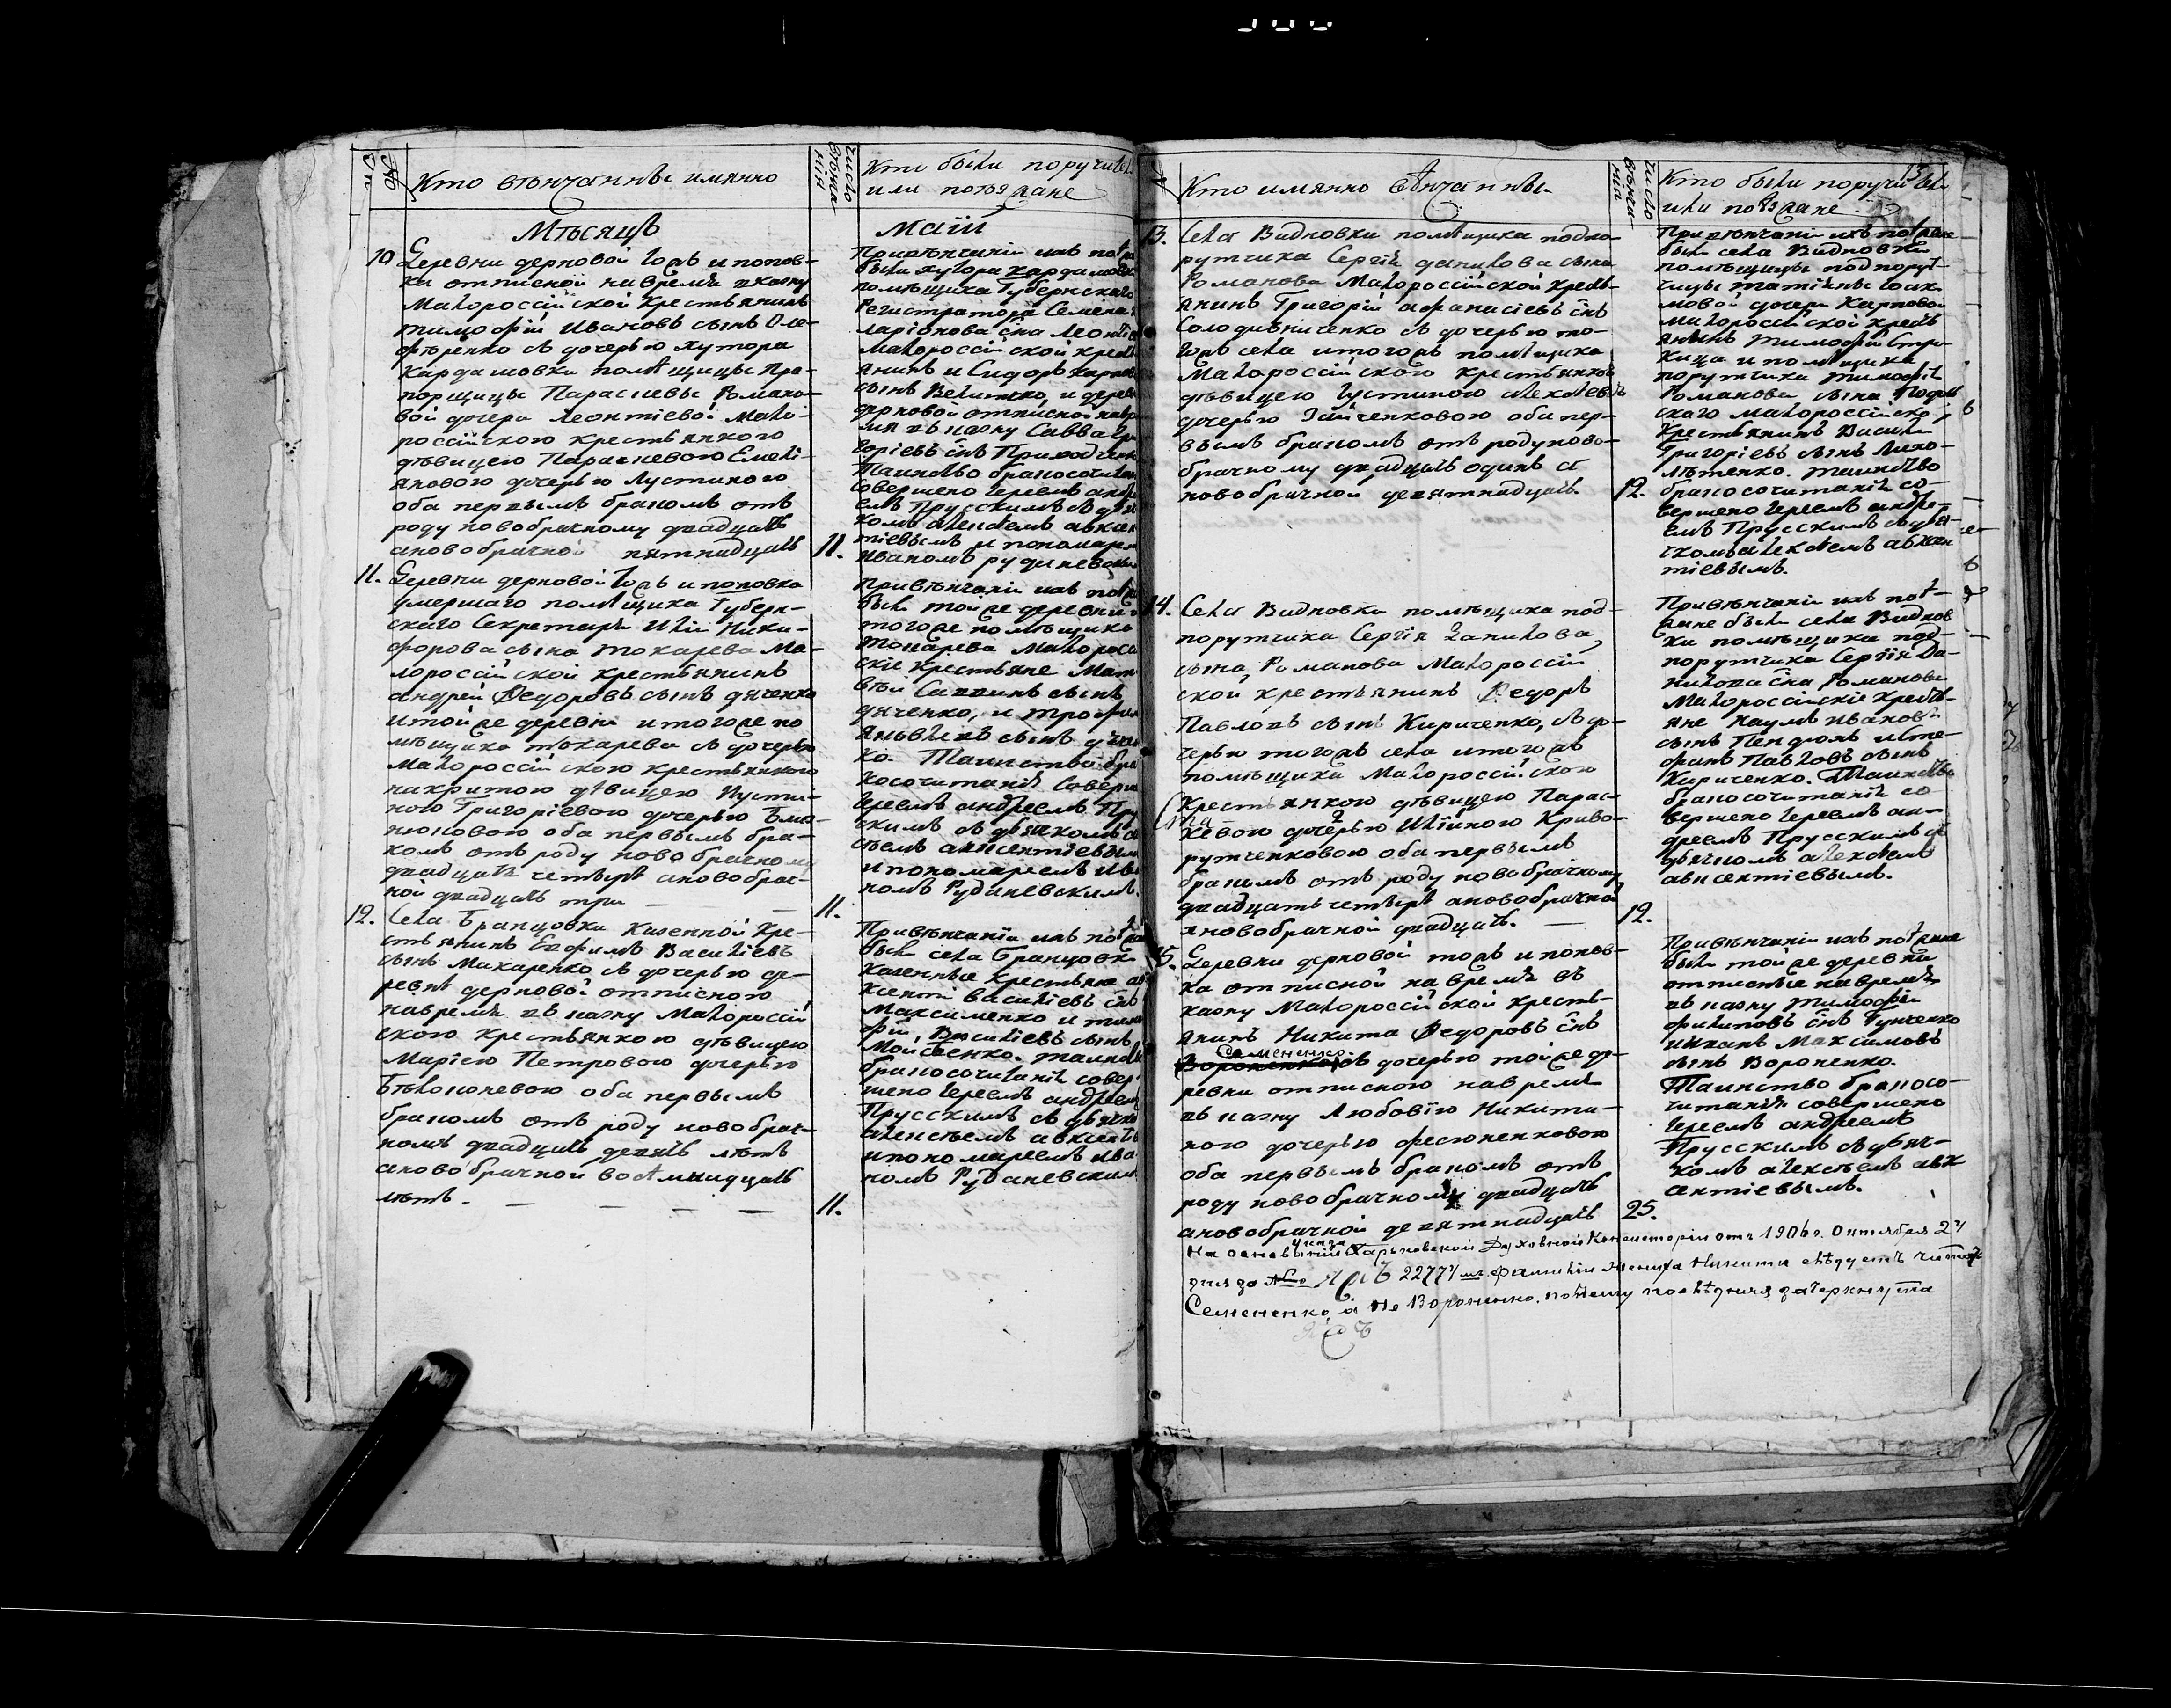 Кто вѣнчанны имянно
число вѣнчанія
Кто были поручител.
или поѣзжане
Мѣсяцъ
Маій
10 Деревни дерновой тожъ и попов-
ки отписной на время вказну
Малороссійской крестьянинъ
тимофій Ивановъ сынъ Оле-
фѣренко съ дочерью хутора
Кардашовки помѣщицы Пра-
порщицы Параскевы Романо-
вой дочери Леонтіевой Мало-
россійскою крестьянкою
дѣвицею Параскевою Емелі-
яновою дочерью Лустиною
оба первымъ бракомъ отъ
роду новобрачному двадцать
а новобрачной пятнадцать
11.
Привѣнчаніи ихъ поѣзж
были хутора Кардашовк
помѣщика Губернскаго
Регистратора Семена
ларіонова сна Леонті
малороссійской крест
янинъ и Сидоръ карпов
сынъ Величко, и дерев
дерновой отписной навре
мя въ казну Савва Гри
горіевъ снъ Приходченк
Таинство бракосочитан
совершено Іереемъ анд
еемъ Прусскимъ съ дьяч
комъ алексѣемъ авксен
тіевымъ и пономарем
Иваномъ рудиневским
11. Деревни дерновой тожъ и поповка
умершаго помѣщика Губерн-
скаго Секретаря Иліи Ники-
форова сына Токарева Ма-
лороссійской крестьянинъ
андрей Ѳедоровъ сынъ дяченко
и тойже деревни и тогоже по
мѣщика токарева съ дочерью
Малороссійскою крестьянкою
дѣвицею Иусти-
ною Григоріевою дочерью
оба первымъ бра-
комъ отъ роду новобрачному
двадцать четыре а новобрач-
ной двадцать три —
11.
Привѣнчаніи ихъ поѣзж
были тойже деревни и
тогоже помѣщика
Токарева Малоросс
скіе крестьяне Мат
вѣй Саввинъ сынъ
дяченко, и трофим
сынъ дячен
ко. Таинство бра
косочитанія соверш
Іереемъ андреемъ Пр
скимъ съ дьячкомъ а
сѣемъ авксентіевым
и пономаремъ Ив
номъ Рудиневскимъ.
12. Села Бранцовки Казенной кре-
стьянинъ Ефимъ Василіевъ
сынъ Макаренко съ дочерью де-
ревнѣ дерновой отписною
навремя въ казну Малороссій
скою крестьянкою дѣвицею
Маріею Петровою дочерью
Бѣлоконевою оба первымъ
бракомъ отъ роду новобрач-
ному двадцать девять лѣтъ
а новобрачной восѣмнадцать
лѣтъ. — — — —
11.
Привѣнчаніи ихъ поѣзж
были села Бранцовки
казенные крестьяне ав
ксенті василіевъ снъ
Максименко и тимо
фій Василіевъ сынъ
Мойсѣенко. таинств
бракосочитанія совер
шено Іереемъ андреем
Прусскимъ съ дьячко
алексѣемъ авксент
и пономаремъ ива
номъ Рудиневским
Кто имянно вѣнчанны
число вѣнчанія
13
Кто были поручител.
или поѣзжане
13. Села Видновки помѣщика подпо-
рутчика Сергія данилова сына
Романова Малороссійской кресть-
янинъ Григорій афанасіевъ снъ
Солодивниченко съ дочерью то-
гожъ села и тогожъ помѣщика
Малороссійскою крестьянкою
дѣвицею Іустиною алексѣевою
дочерью Заиченковою оба пер-
вымъ бракомъ отъ роду ново-
брачному двадцать одинъ а
новобрачной девятнадцать.
12.
Привѣнчаніи ихъ поѣзжане
были села Видновки
помѣщицы подпорут-
чицы татіяны Іоаки-
мовой дочери Карповой
малороссійской кресть
янинъ Тимофій
и помѣщика
порутчика тимофія
Романова сына
скаго малороссійско
крестьянинъ Василій
Григоріевъ сынъ Лихо-
лѣтенко. таинство
бракосочитанія со-
вершено Іереемъ андре-
емъ Прусскимъ съ дья-
чкомъ алексѣемъ авксен
тіевымъ.
14. Села Видновки помѣщика под-
порутчика Сергія Данилова
сына Романова Малороссій
ской крестьянинъ Ѳедоръ
Павловъ сынъ Кириченко, съ до-
черью тогожъ села и тогожъ
помѣщика Малороссійскою
крестьянкою дѣвицею Парас-
кевою дочерью Иліиною Криво-
рутченковою оба первымъ
бракомъ отъ роду новобрачному
двадцать четыре а новобрачной
а новобрачной двадцать. —
12.
Привѣнчаніи ихъ поѣ-
зжане были села Виднов
ки помѣщика под-
порутчика Сергія Да-
нилова сна Романова
Малороссійскіе кресть-
яне Наумъ Ивановъ
сынъ и сте-
фанъ Павловъ сынъ
Кириченко. Таинство
бракосочитанія со
вершено Іереемъ ан-
дреемъ Прусскимъ съ
дьячкомъ алексѣемъ
авксентіевымъ.
15. Деревни дерновой тожъ и попов-
ка отписной на время въ
казну Малороссійской кресть-
янинъ Никита Ѳедоровъ снъ
Семененко
Вороненко съ дочерью тойже де-
ревни отписною навремя
въ казну Любовію Никити-
ною дочерью фесюненковою
оба первымъ бракомъ отъ
роду новобрачному двадцать
а новобрачной девятнадцать
25.
Привѣнчаніи ихъ поѣзжане
были тойже деревни
отписные навремя
въ казну тимофій
филиповъ снъ Гунченко
и иванъ Максимовъ
сынъ Вороненко.
Таинство бракосо-
читанія совершено
Іереемъ андреемъ
Прусскимъ съ дьяч-
комъ алексѣемъ авк
сентіевымъ.
указа
На основаніи Харьковской Духовной Консисторіи отъ 1906 г. Октября 24
дня за № 22774 мъ. фамилію жениха Никиты слѣдуетъ читать
Семененко, а не Вороненко, почему послѣдняя зачеркнута